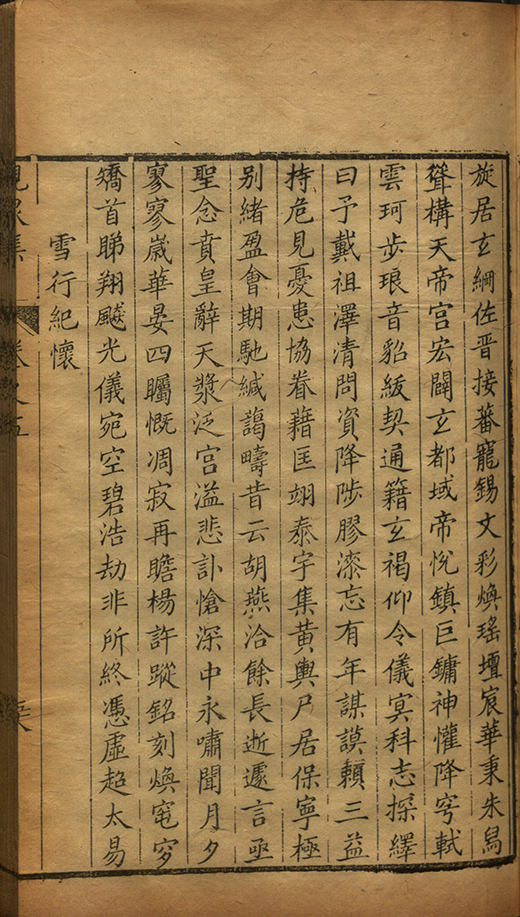 旋居玄綱佐晋接蕃寵錫文彩煥瑤壇宸華秉朱舄
聳構天帝宫宏闢玄都域帝悅鎮巨鏞神懽降穹軾
雲珂步琅音貂紱契通籍玄褐仰令儀冥科志探繹
曰予戴祖澤清問資降陟膠漆忘有年謀謨賴三益
持危見憂患協眷藉匡翊泰宇集黄輿尸居保寧極
别緒盈會期馳緘藹疇昔云胡燕洽餘長逝遽言亟
聖念賁皇辭天漿泛宫溢悲訃愴深中永嘯聞月夕
寥寥嵗華晏四矚慨凋寂再瞻楊許蹤銘刻煥窀穸
矯首睇翔飈光儀宛空碧浩劫非所終憑虛超太易
雪行紀懷
峴泉集 卷之五